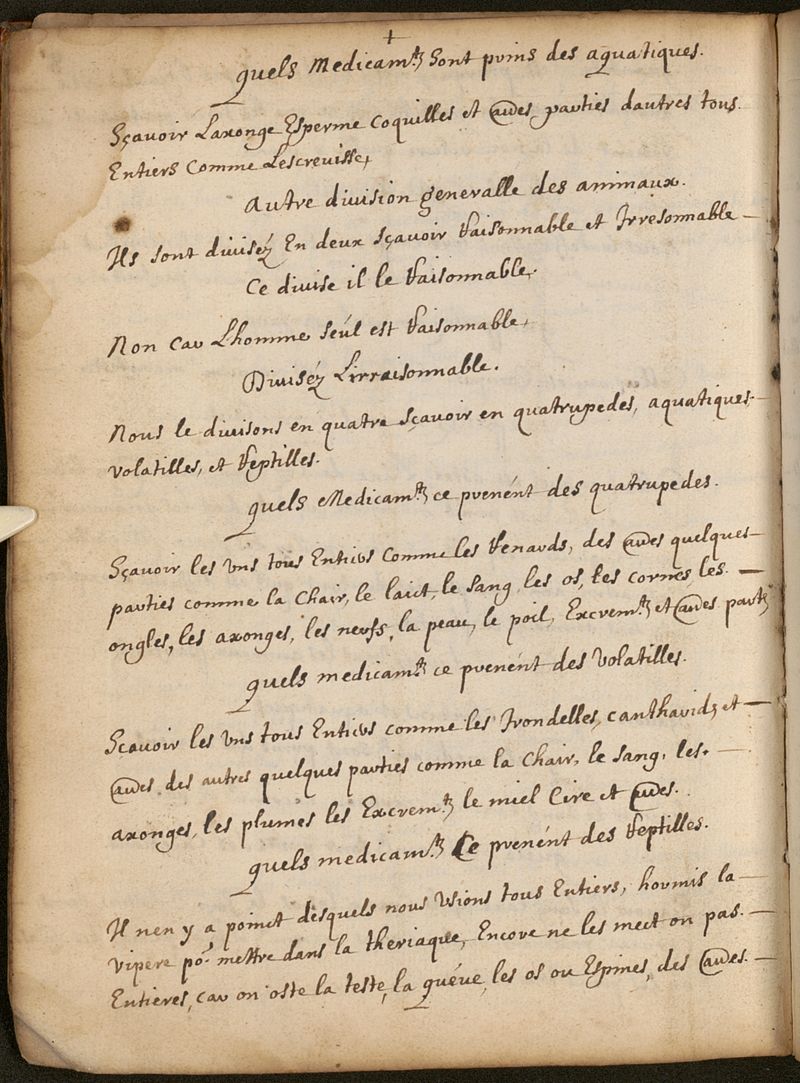 +
quels Medicamts sont prins des aquatiques.
Sçavoir Laxonge Esperme Coquilles et aues parties dautres tous
Entiers Comme Lescrevisse,
Autre division generalle des animaux.
Ils sont divisez En deux sçavoir Raisonnable et Irresonnable –
Ce divise il le Raisonnable.
Non car Lhomme seul est Raisonnable,
Divisez Lirraisonnable.
Nous le divisons en quatre sçavoir en quatrupedes, aquatiques –
volatilles, et Reptilles.
quels Medicamts ce prenent des quatrupedes.
Sçavoir les uns tous Entiers Comme les Renards, des aues quelques –
parties comme la Chair, le laict, le sang, les os, les cornes, les –
ongles, les axonges, les nerfs, la peau, le poil, Excremts et aues parts
quels medicamts ce prenent des Volatilles.
Sçavoir les uns tous Entiers comme les Irondelles, cantharids et –
aues des autres quelques parties comme la Chair, le sang, les. –
axonges, les plumes les Excremts le miel Cire et aues.
quels medicamts Ce prenent des Reptilles.
Il nen y a poinct desquels nous Usions tous Entiers, hormis la –
vipere por mettre dans la theriaque, Encore ne les mect on pas. –
Entieres, car on oste la teste, la queue, les os ou Espines, des aues. –